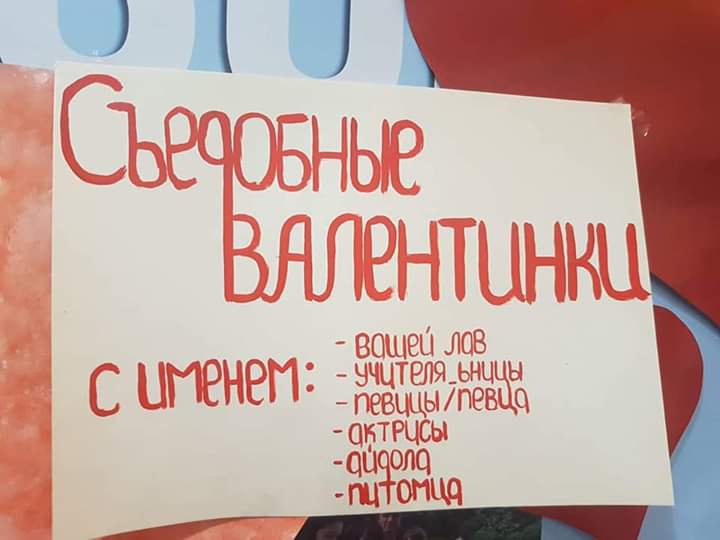 Съедобные
ВАЛЕНТИНКИ
с именем:
- вашей лав
- учителя_ьницы
- певицы/певца
- актрисы
- айдола
- питомца